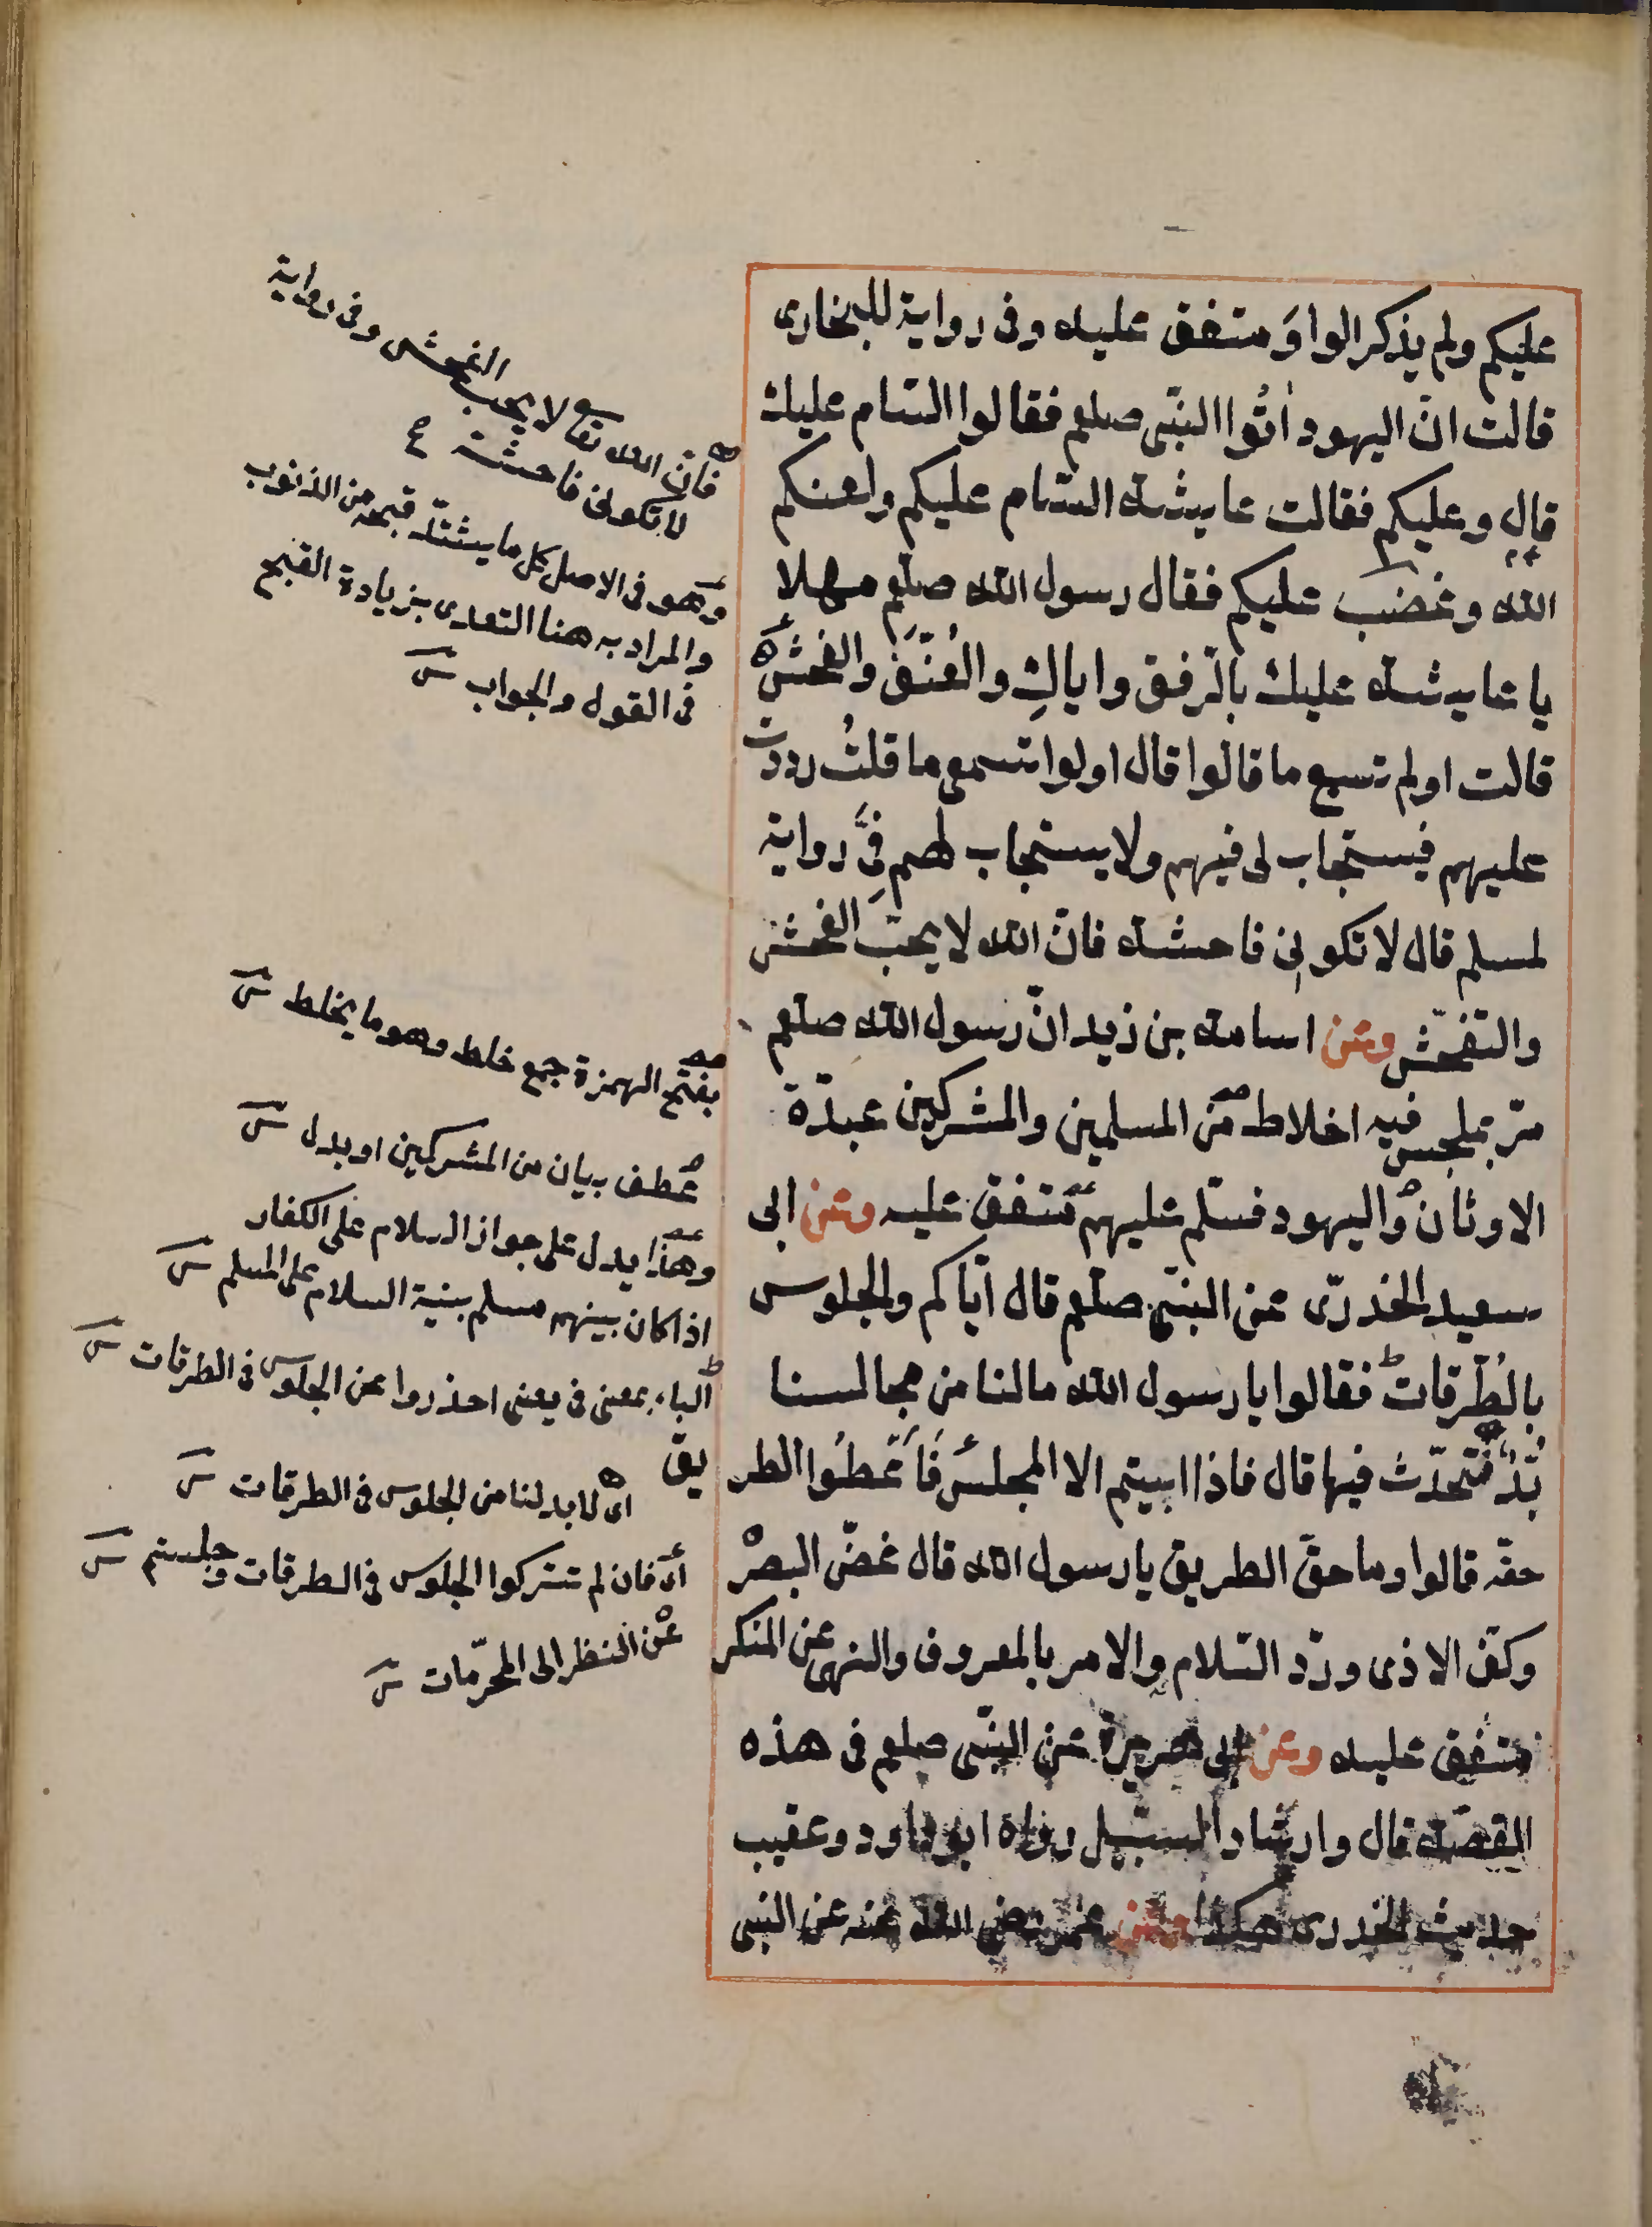 عليكم ولم يذكر الواوَ متفق عليه وفى رواية للبخارى
قالت انّ اليهود اتُوا النبّى صلعم فقالوا السّام عليك
قال وعليكم فقالت عايشه السّام عليكم ولعنكم
الله وغضب عليكم فقال رسول الله صلعم مهلا
يا عايشه عليك بالرّفق واياكِ والعُنْف والفحش
قالت اولم تسمع ما قالوا قال اولوا تسمعى ما قلتُ رددت
عليهم فيستجاب لى فيهم ولا يستجاب لهم فىَّ رواية
لمسلم قال لا تكونى فاحشه فانّ الله لا يحبّ الفحش
والتفحّش وعن اسامه بن زيد انّ رسول الله صلعم
مرّ بمجلس فيه اخلاط من المسلمين والمشركين عبدة
الاوثان واليهود فسلّم عليهم متفق عليه وعن ابى
سعيد الخدرّى عن النبىّ صلعم قال ايّاكم والجلوس
بالطُّرقات فقالوا يا رسول الله مالنا من مجالسنا
بُدّ نتحدّث فيها قال فاذا ابيتم الا المجلس فَاَعْطُوا الطر
يق
حقّه قالوا وما حقّ الطريق يا رسول الله قال غضّ البصر
وكفّ الاذى وردّ السّلام والامر بالمعروف والنهى عن المنكر
متفق عليه وعن ابى هريرة عن النبّى صلعم فى هذه
القصّه قال وارشاد السبيل رواه ابو داود وعقيب
حديث الخدرى هكذا وعن عمر رضى الله عنه عن النبى
فانّ الله تعا لا يحب الفحش وفى رواية
لا تكونى فاحشة
وهو فى الاصل كل ما يشتدّ قبحه من الذنوب
والمراد به هنا التعدى بزيادة القبح
فى القول والجواب
بفتح الهمزة جمع خلط وهو ما يخلط
عطف بيان من المشركين او بدل
وهذا يدل على جواز السلام على الكفار
اذا كان بينهم مسلم بنية السلام على المسلم
الباء بمعنى فى يعنى احذروا عن الجلوس فى الطرقات
اى لا بد لنا من الجلوس فى الطرقات
اى فان لم تتركوا الجلوس فى الطرقات وجلستم
عن النظر الى المحرّمات